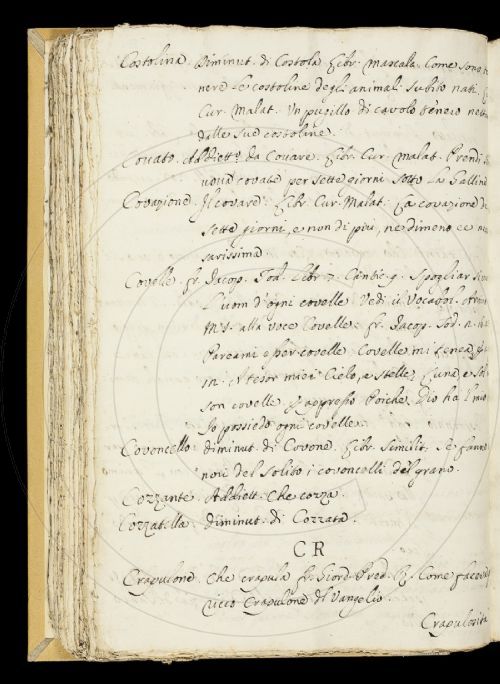 Costolina. Diminut. di Costola Libr. Mascalc. Come sono te
nere le costoline degli animali subito nati
Cur. Malat. Un pugillo di cavolo tenero nett
dalle sue costoline.
Covato. Addiett. da Covare. Libr. Cur. Malat. Prendi
uova covate per sette giorni sotto la Gallina
Covazione. Il covare. Libr. Cur. Malat. La covazione de
sette giorni, e non di più, ne di meno e ne
sarissima
Covelle. Fr. Jacop. Tod. Libr. 7. Cantic. 9. Spogliarsi
L'uom d'ogni covelle Vedi il Vocabol.
MS. alla voce Covelle. Fr. Jacop. Tod. n.
Pareami o per covelle Covelle mi tenea
in. A tesor miei Cielo, e stelle, Luna, e Sol
son covelle. E appresso Poiche Dio ha l'
Io possiedo ogni covelle.
Covoncello. diminut. di Covone. Libr. Similit. Se fanno
noi del solito i covoncelli del grano.
Cozzante. Addiett. Che cozza.
Cozzatella. diminut. di Cozzata.
CR
Crapulone. Che crapula Fr. Giord. Pred. R. Come faceva
ricco Crapulone del Vangelio.
Crapulosità